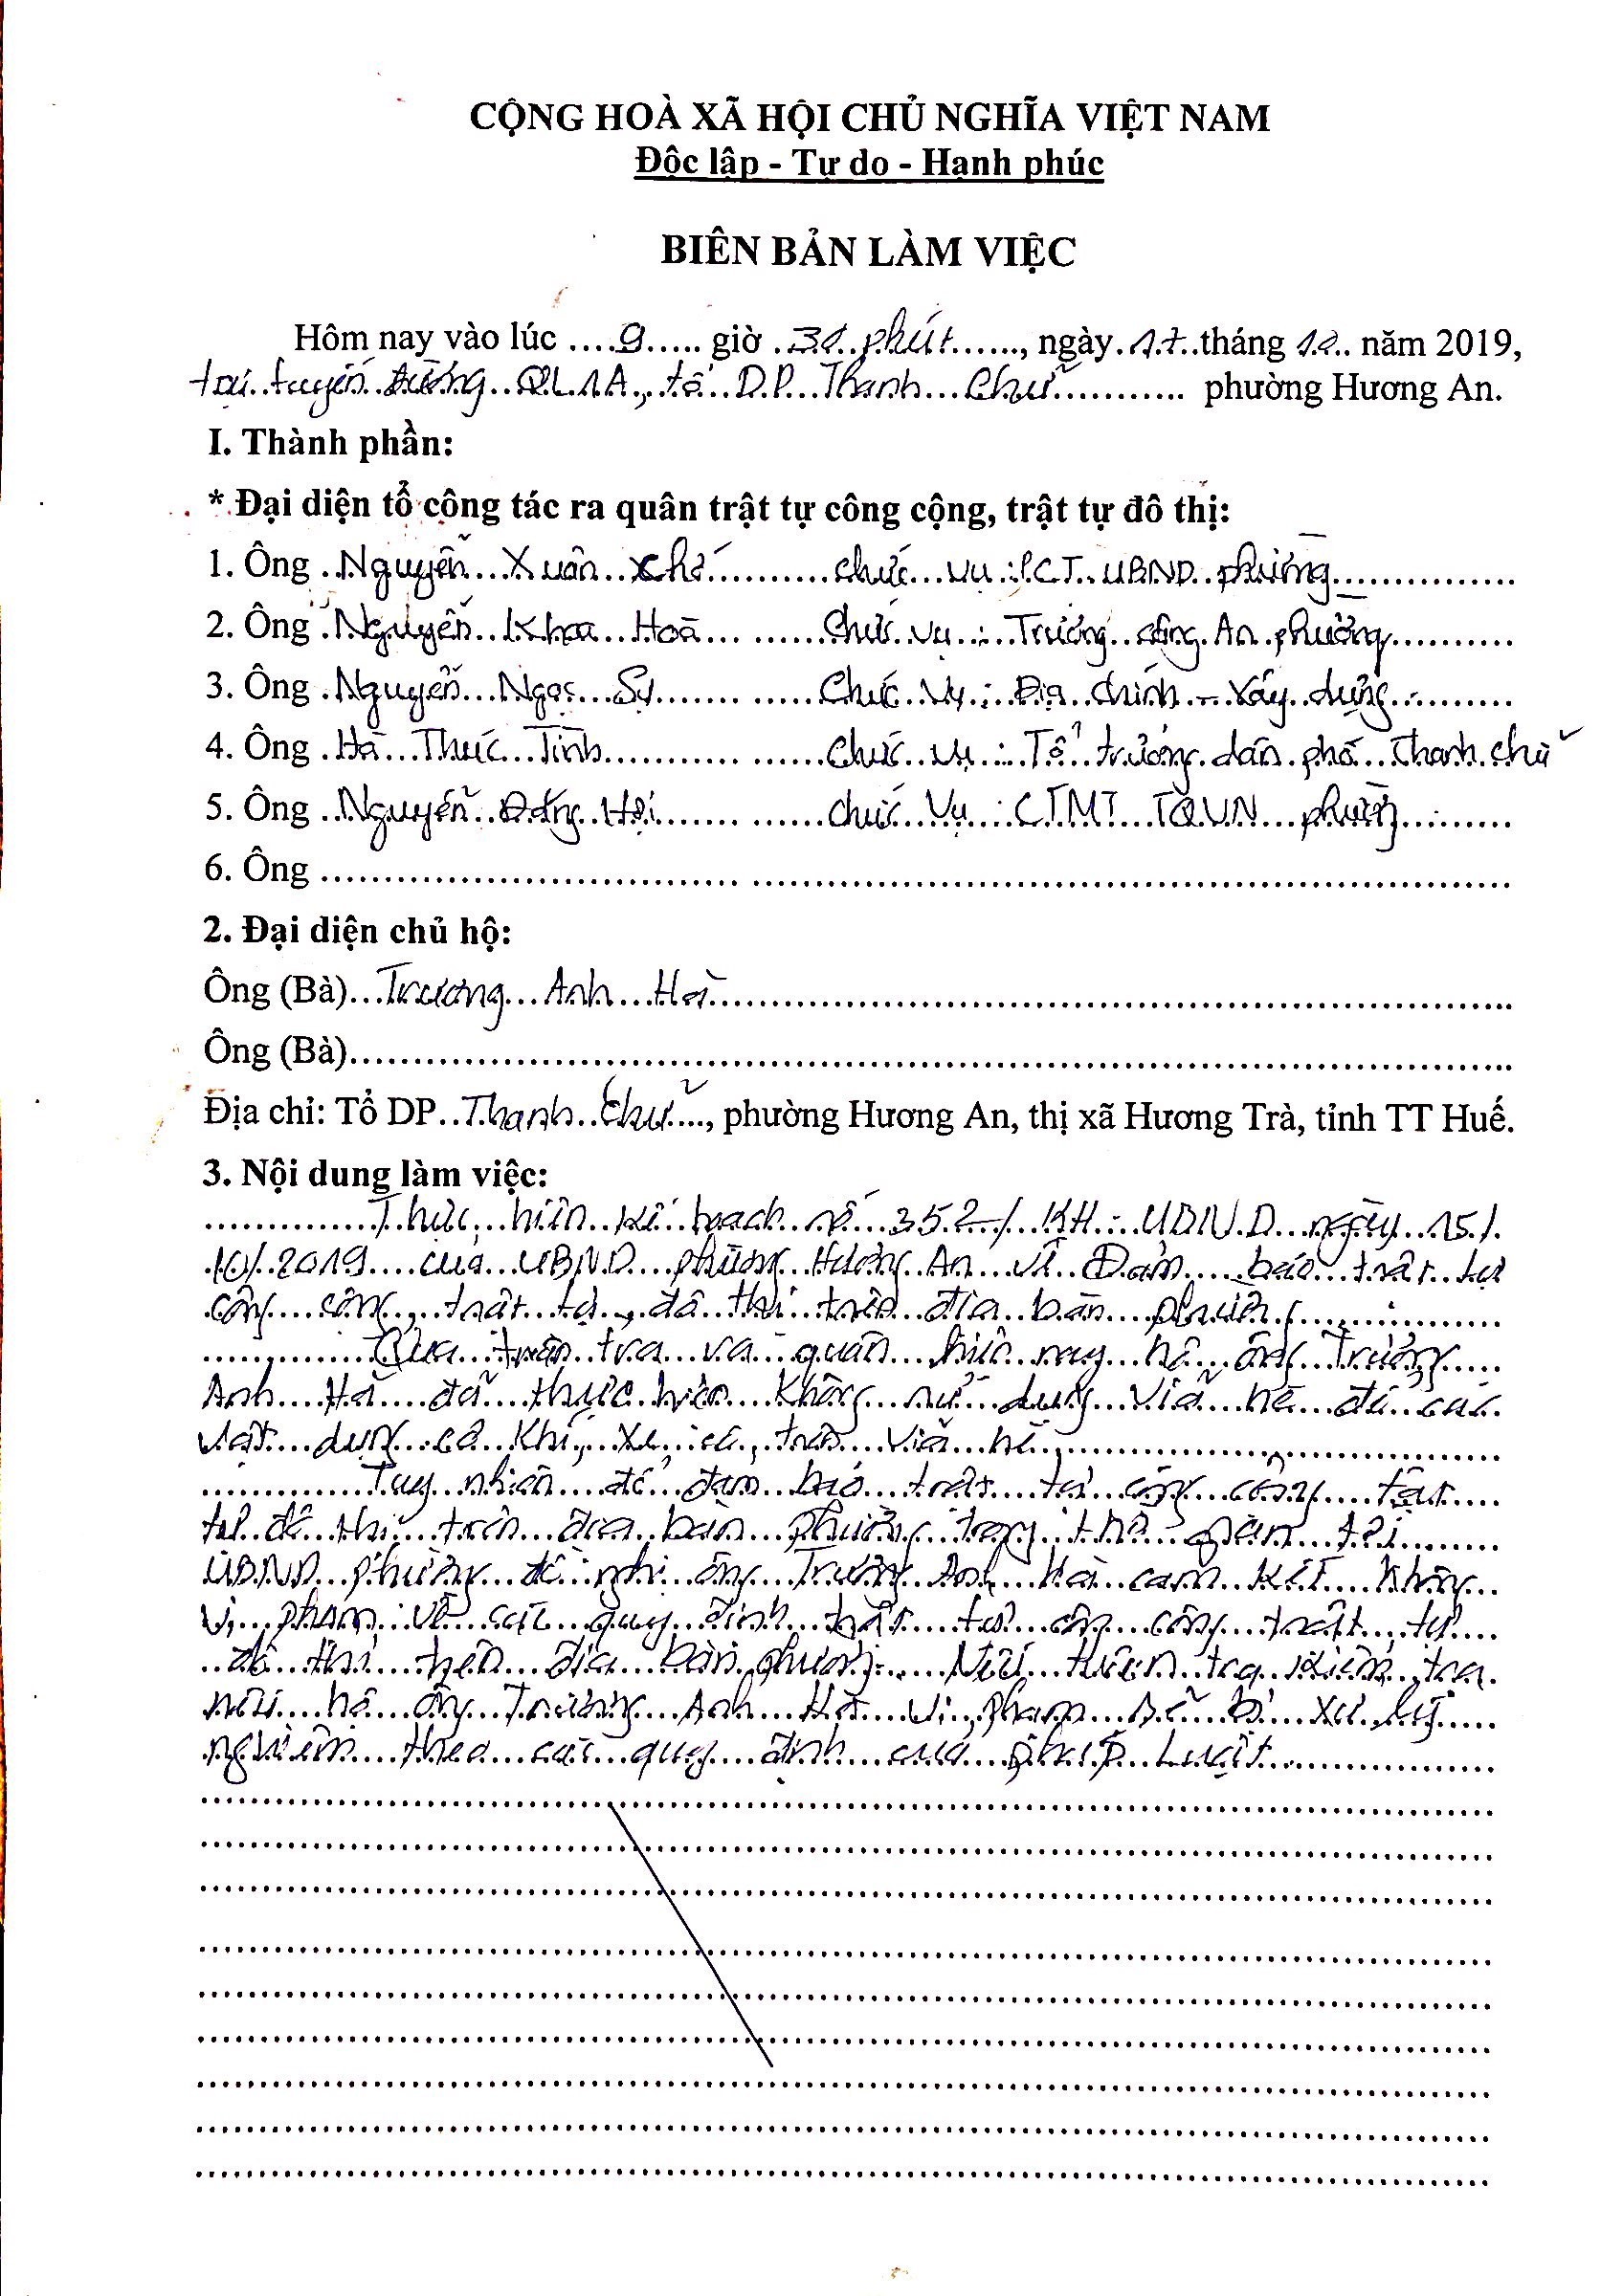 CỘNG HOÀ XÃ HỘI CHỦ NGHĨA VIỆT NAM
Độc lập - Tự do - Hạnh phúc
BIÊN BẢN LÀM VIỆC
Hôm nay vào lúc ....9..... giờ .31 phút......, ngày.17..tháng 10.. năm 2019,
tại tuyến đường QL1A, tổ DP Thanh Chữ........... phường Hương An.
I. Thành phần:
* Đại diện tổ công tác ra quân trật tự công cộng, trật tự đô thị:
1. Ông Nguyễn Xuân .......... chức vụ : PCT UBND phường
2. Ông Nguyễn Khoa Hoà ........ Chức vụ : Trưởng công An phường
3. Ông Nguyễn Ngọc Sự ........ Chức vụ : Địa chính - Xây dựng
4. Ông Hà Thúc Tình ........ Chức vụ : Tổ trưởng dân phố Thanh chữ
5. Ông Nguyễn Đăng Hội ........ chức vụ : CTMT TQVN phường
6. Ông ................................. ...........................................................
2. Đại diện chủ hộ:
Ông (Bà)...Trương Anh Hà
Ông (Bà)...........................................................................................
Địa chỉ: Tổ DP..Thanh Chữ..., phường Hương An, thị xã Hương Trà, tỉnh TT Huế.
3. Nội dung làm việc:
Thực hiện kế hoạch số 352/KH-UBND ngày 15/
10/2019 của UBND phường Hương An về Đảm bảo trật tự
công cộng, trật tự đô thị trên địa bàn phường.
Qua tuần tra và quan hiện nay hộ ông Trương
Anh Hà đã thực hiện không sử dụng vỉa hè để các
vật dụng cơ khí, xe cộ, trên vỉa hè.
Tuy nhiên để đảm bảo trật tự công cộng, trật
tự đô thị trên địa bàn phường trong thời gian tới
UBND phường đề nghị ông Trương Anh Hà cam kết không
vi phạm về các quy định trật tự công cộng, trật tự
đô thị trên địa bàn phường. Nếu tuần tra kiểm tra
nếu hộ ông Trương Anh Hà vi phạm sẽ bị xử lý
nghiêm theo các quy định của pháp luật.